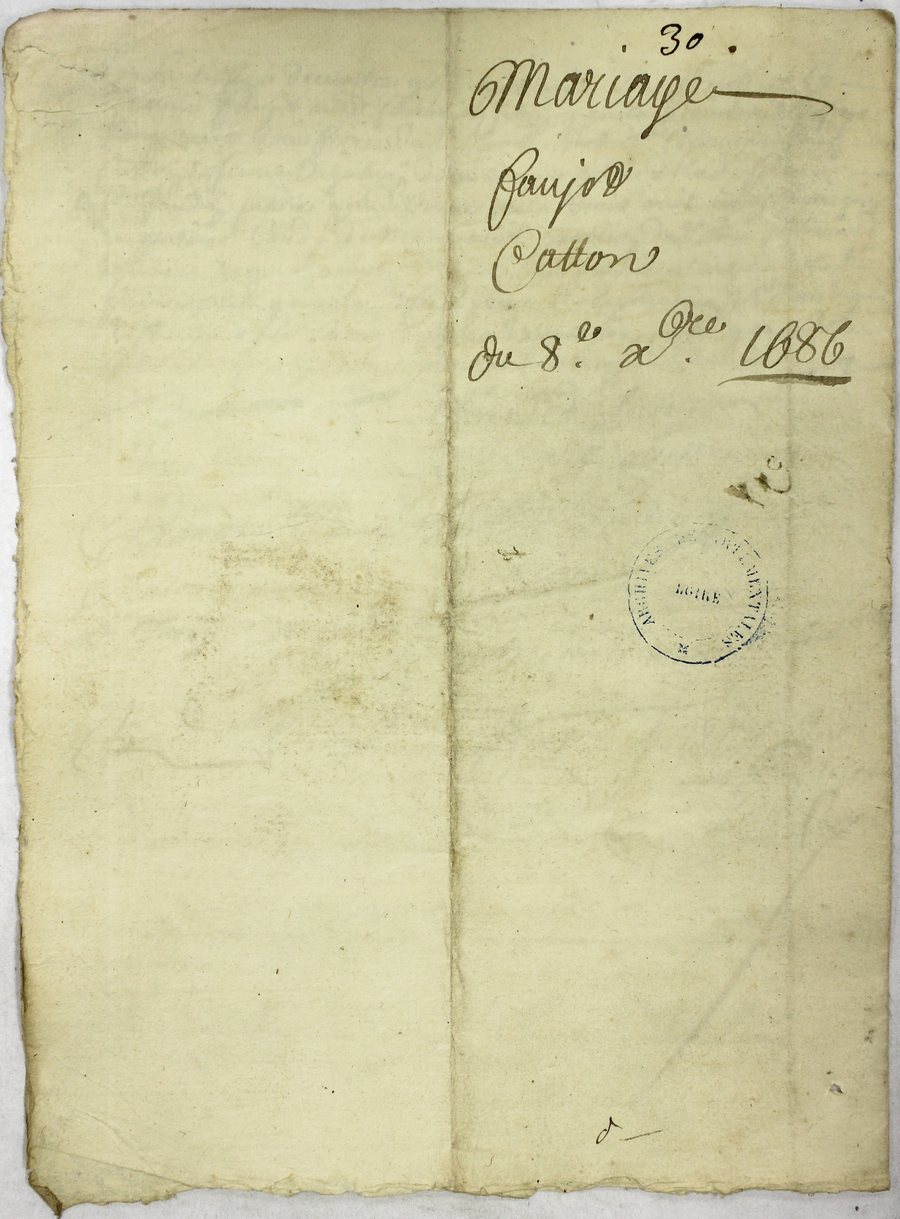 30
Mariage
faujod
Catton
du 8.e xbre. 1686
ARCHIVES DEPARTEMENTALES
LOIRE